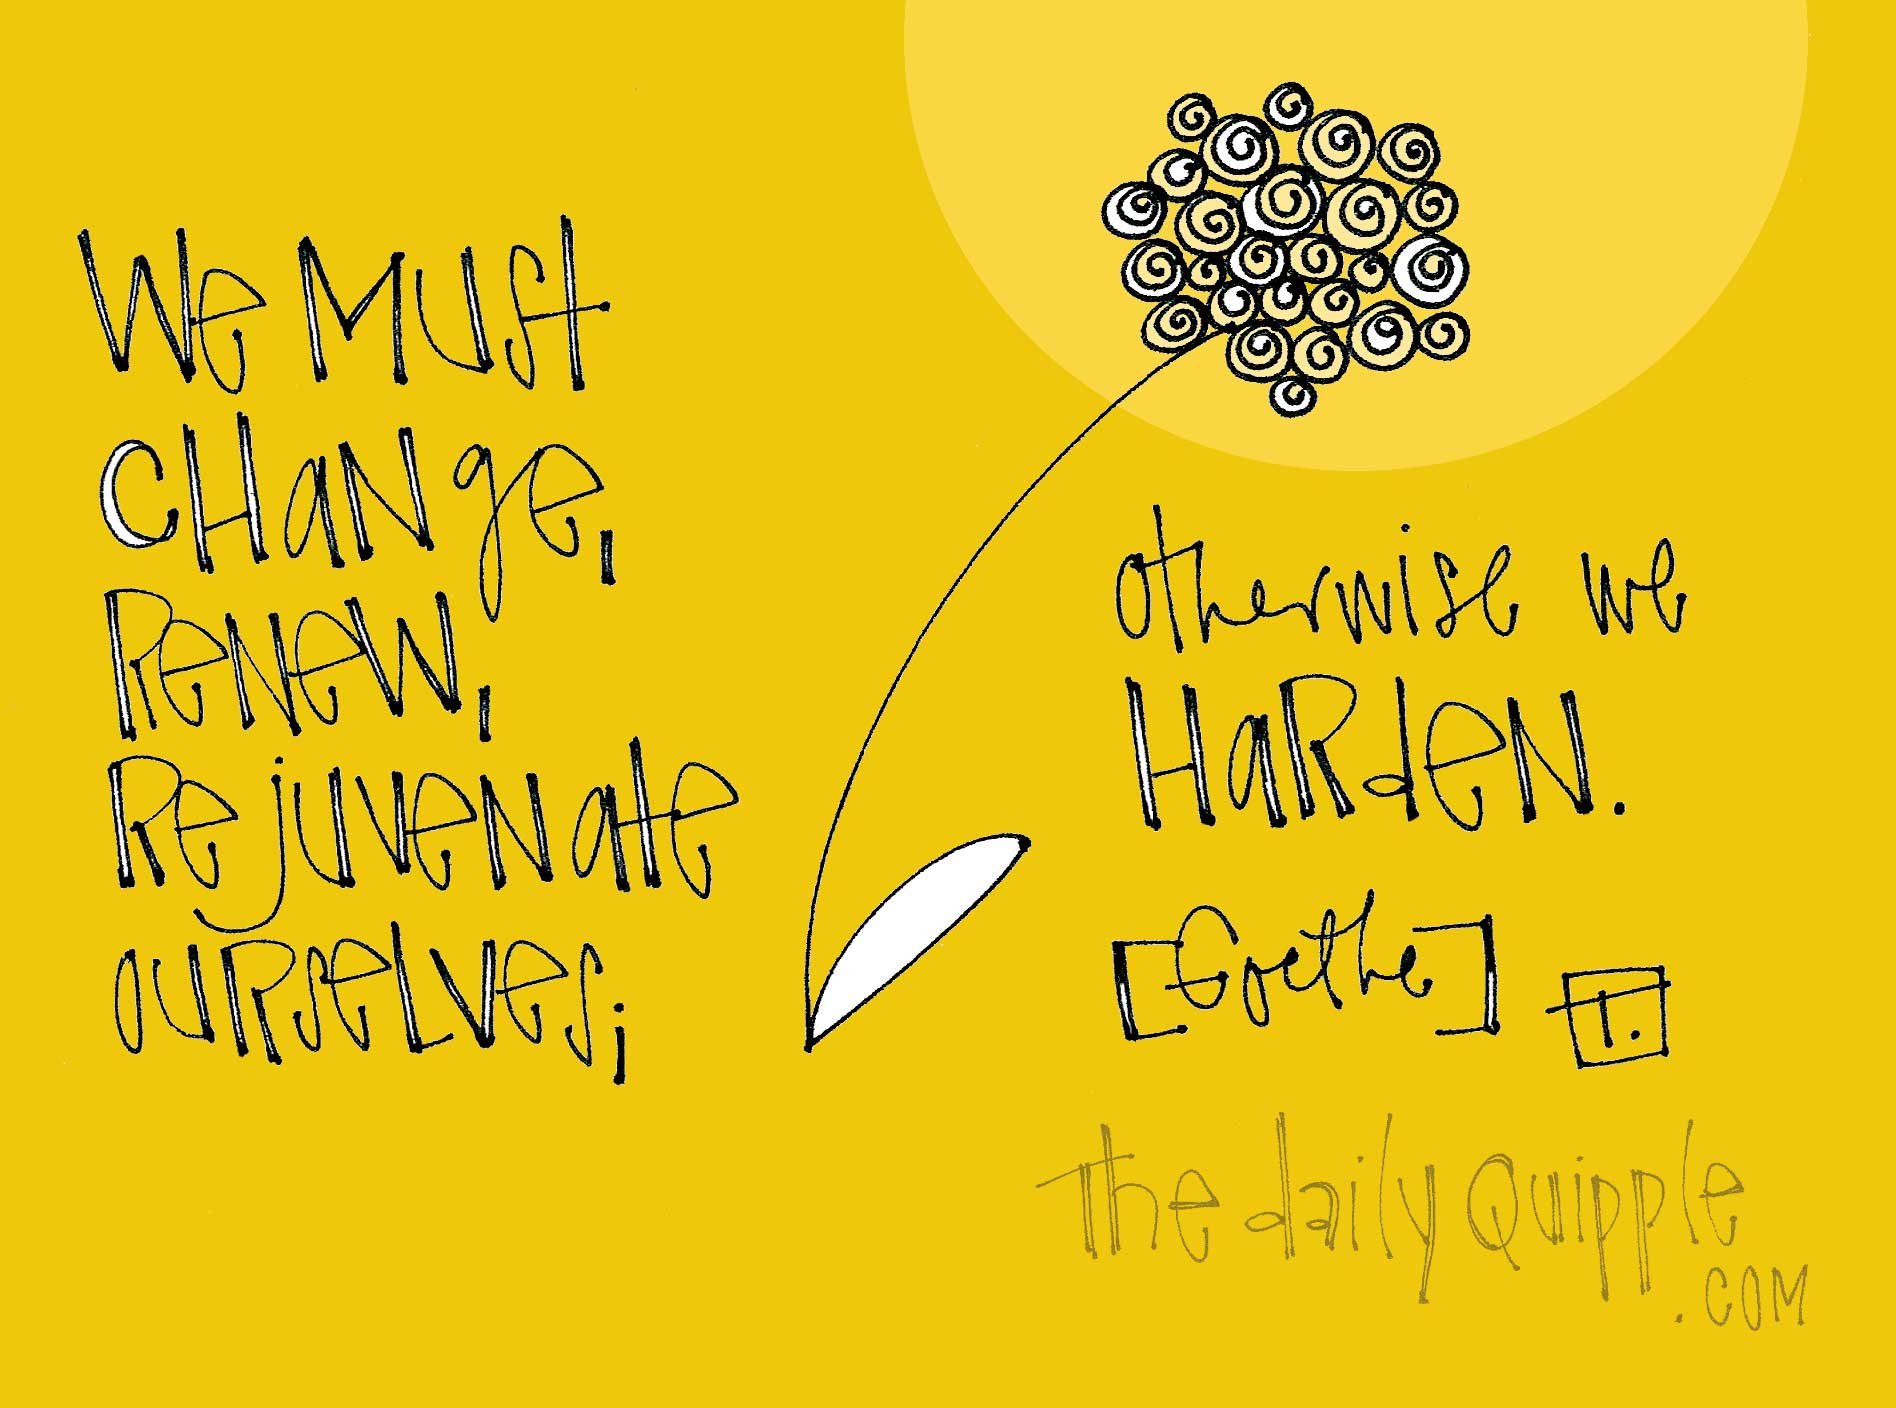 We Must
CHaNge,
ReNeW,
RejuveNate
ourselves;
otherwise we
HaRdeN.
[Goethe]
T.
the daily Quipple
.com